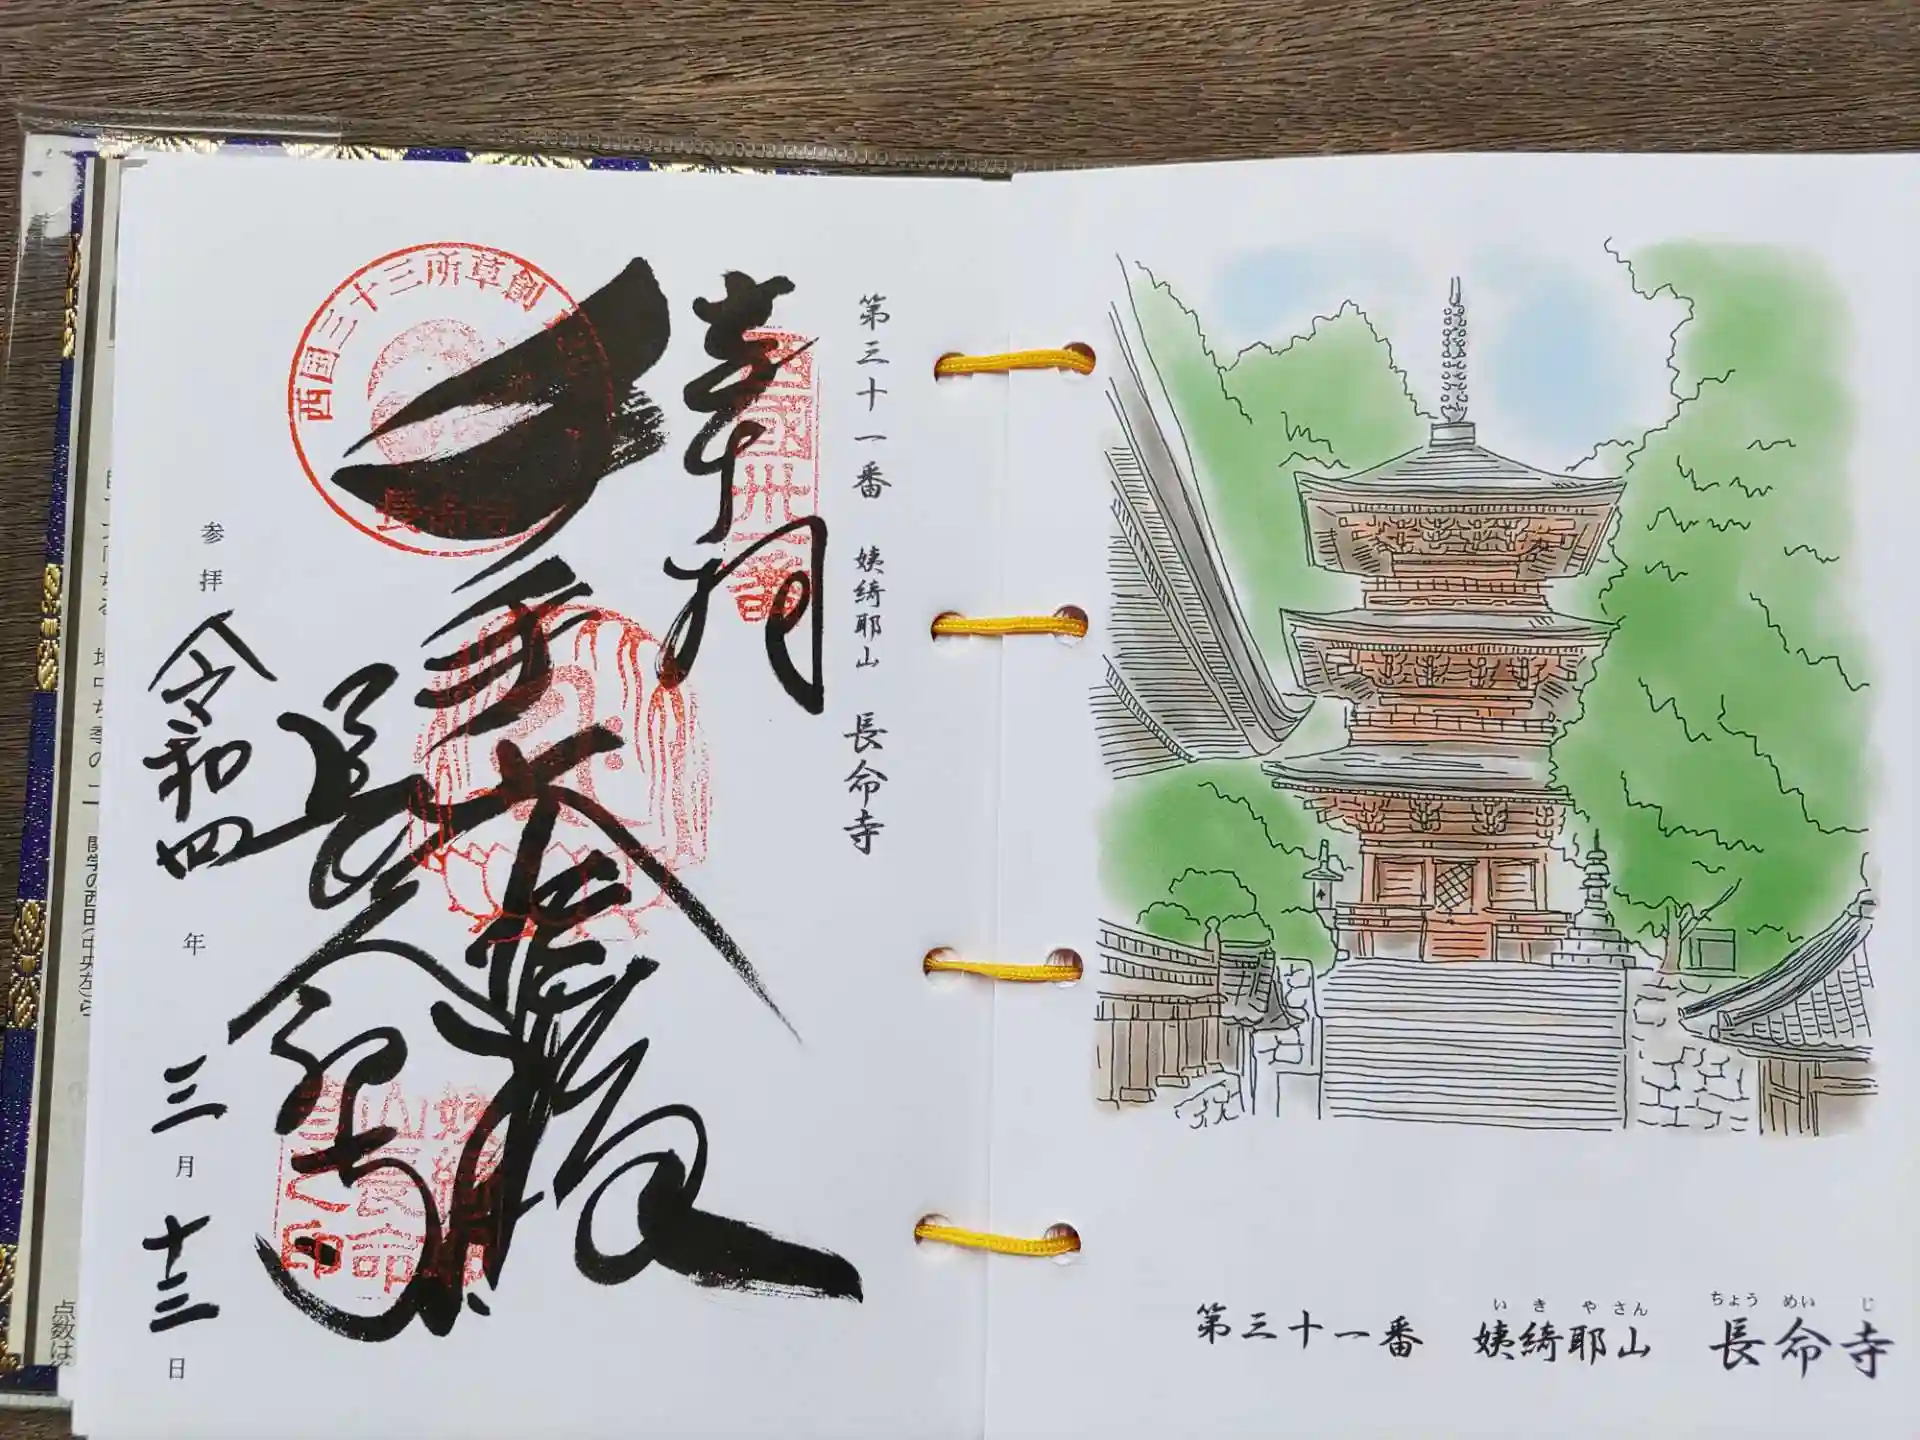 第三十一番 姨綺耶山 長命寺
奉拝
西国卅一番
千手大悲殿
長命寺
西国三十三所草創
参拝 令和四年 三月 十三日
第三十一番 姨綺耶山 長命寺
いきやさん ちょうめいじ
点数は